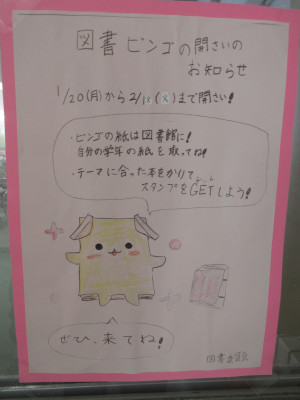 図書ビンゴの開さいの
お知らせ
1/20(月)から2/18(火)まで開さい!
・ビンゴの紙は図書館に!
自分の学年の紙を取ってね!
・テーマに合った本をかりて
スタンプをGETしよう!
ぜひ、来てね!
図書委員